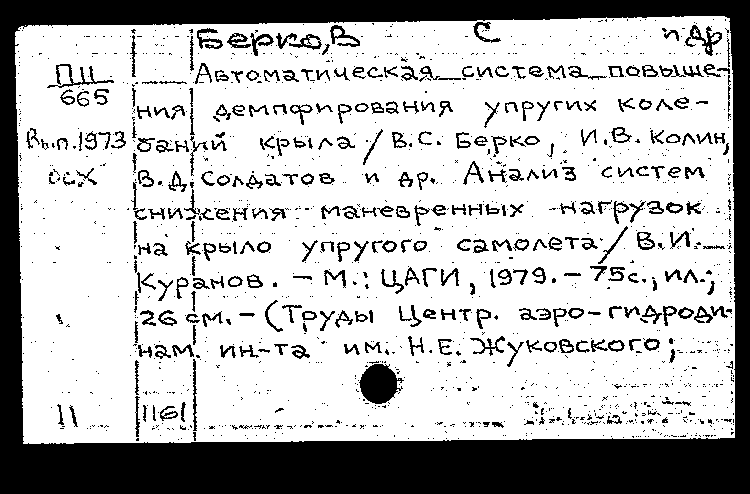 Берко, В С и др
П11
665
Вып.1973
осх
Автоматическая система повыше-
ния демпфирования упругих коле-
баний крыла / В.С. Берко, И.В. Колин,
В.Д. Солдатов и др. Анализ систем
снижения маневренных нагрузок
на крыло упругого самолета / В.И.
Куранов. – М.: ЦАГИ, 1979. – 75с., ил.;
26 см. – (Труды Центр. аэро-гидроди-
нам. ин-та им. Н.Е. Жуковского;
11 1161